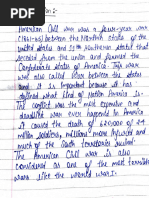 on 2-
American Civil war was a four-year war
(1861-65) between the Northern states of the
united states and 11 Southern states that
seceded from the union and formed the
Confederate states of America. This war
was also called War between the states
and it is important because it has
defined what kind of Nation America is.
The conflict was the most expensive and
deadliest war ever happened to America
it caused the death of 620,000 of 2.4
million soldiers, millions more injured and
much of the South territories ruined.
The American civil war is also
considered as one of the most terrible
wars like the world war I.